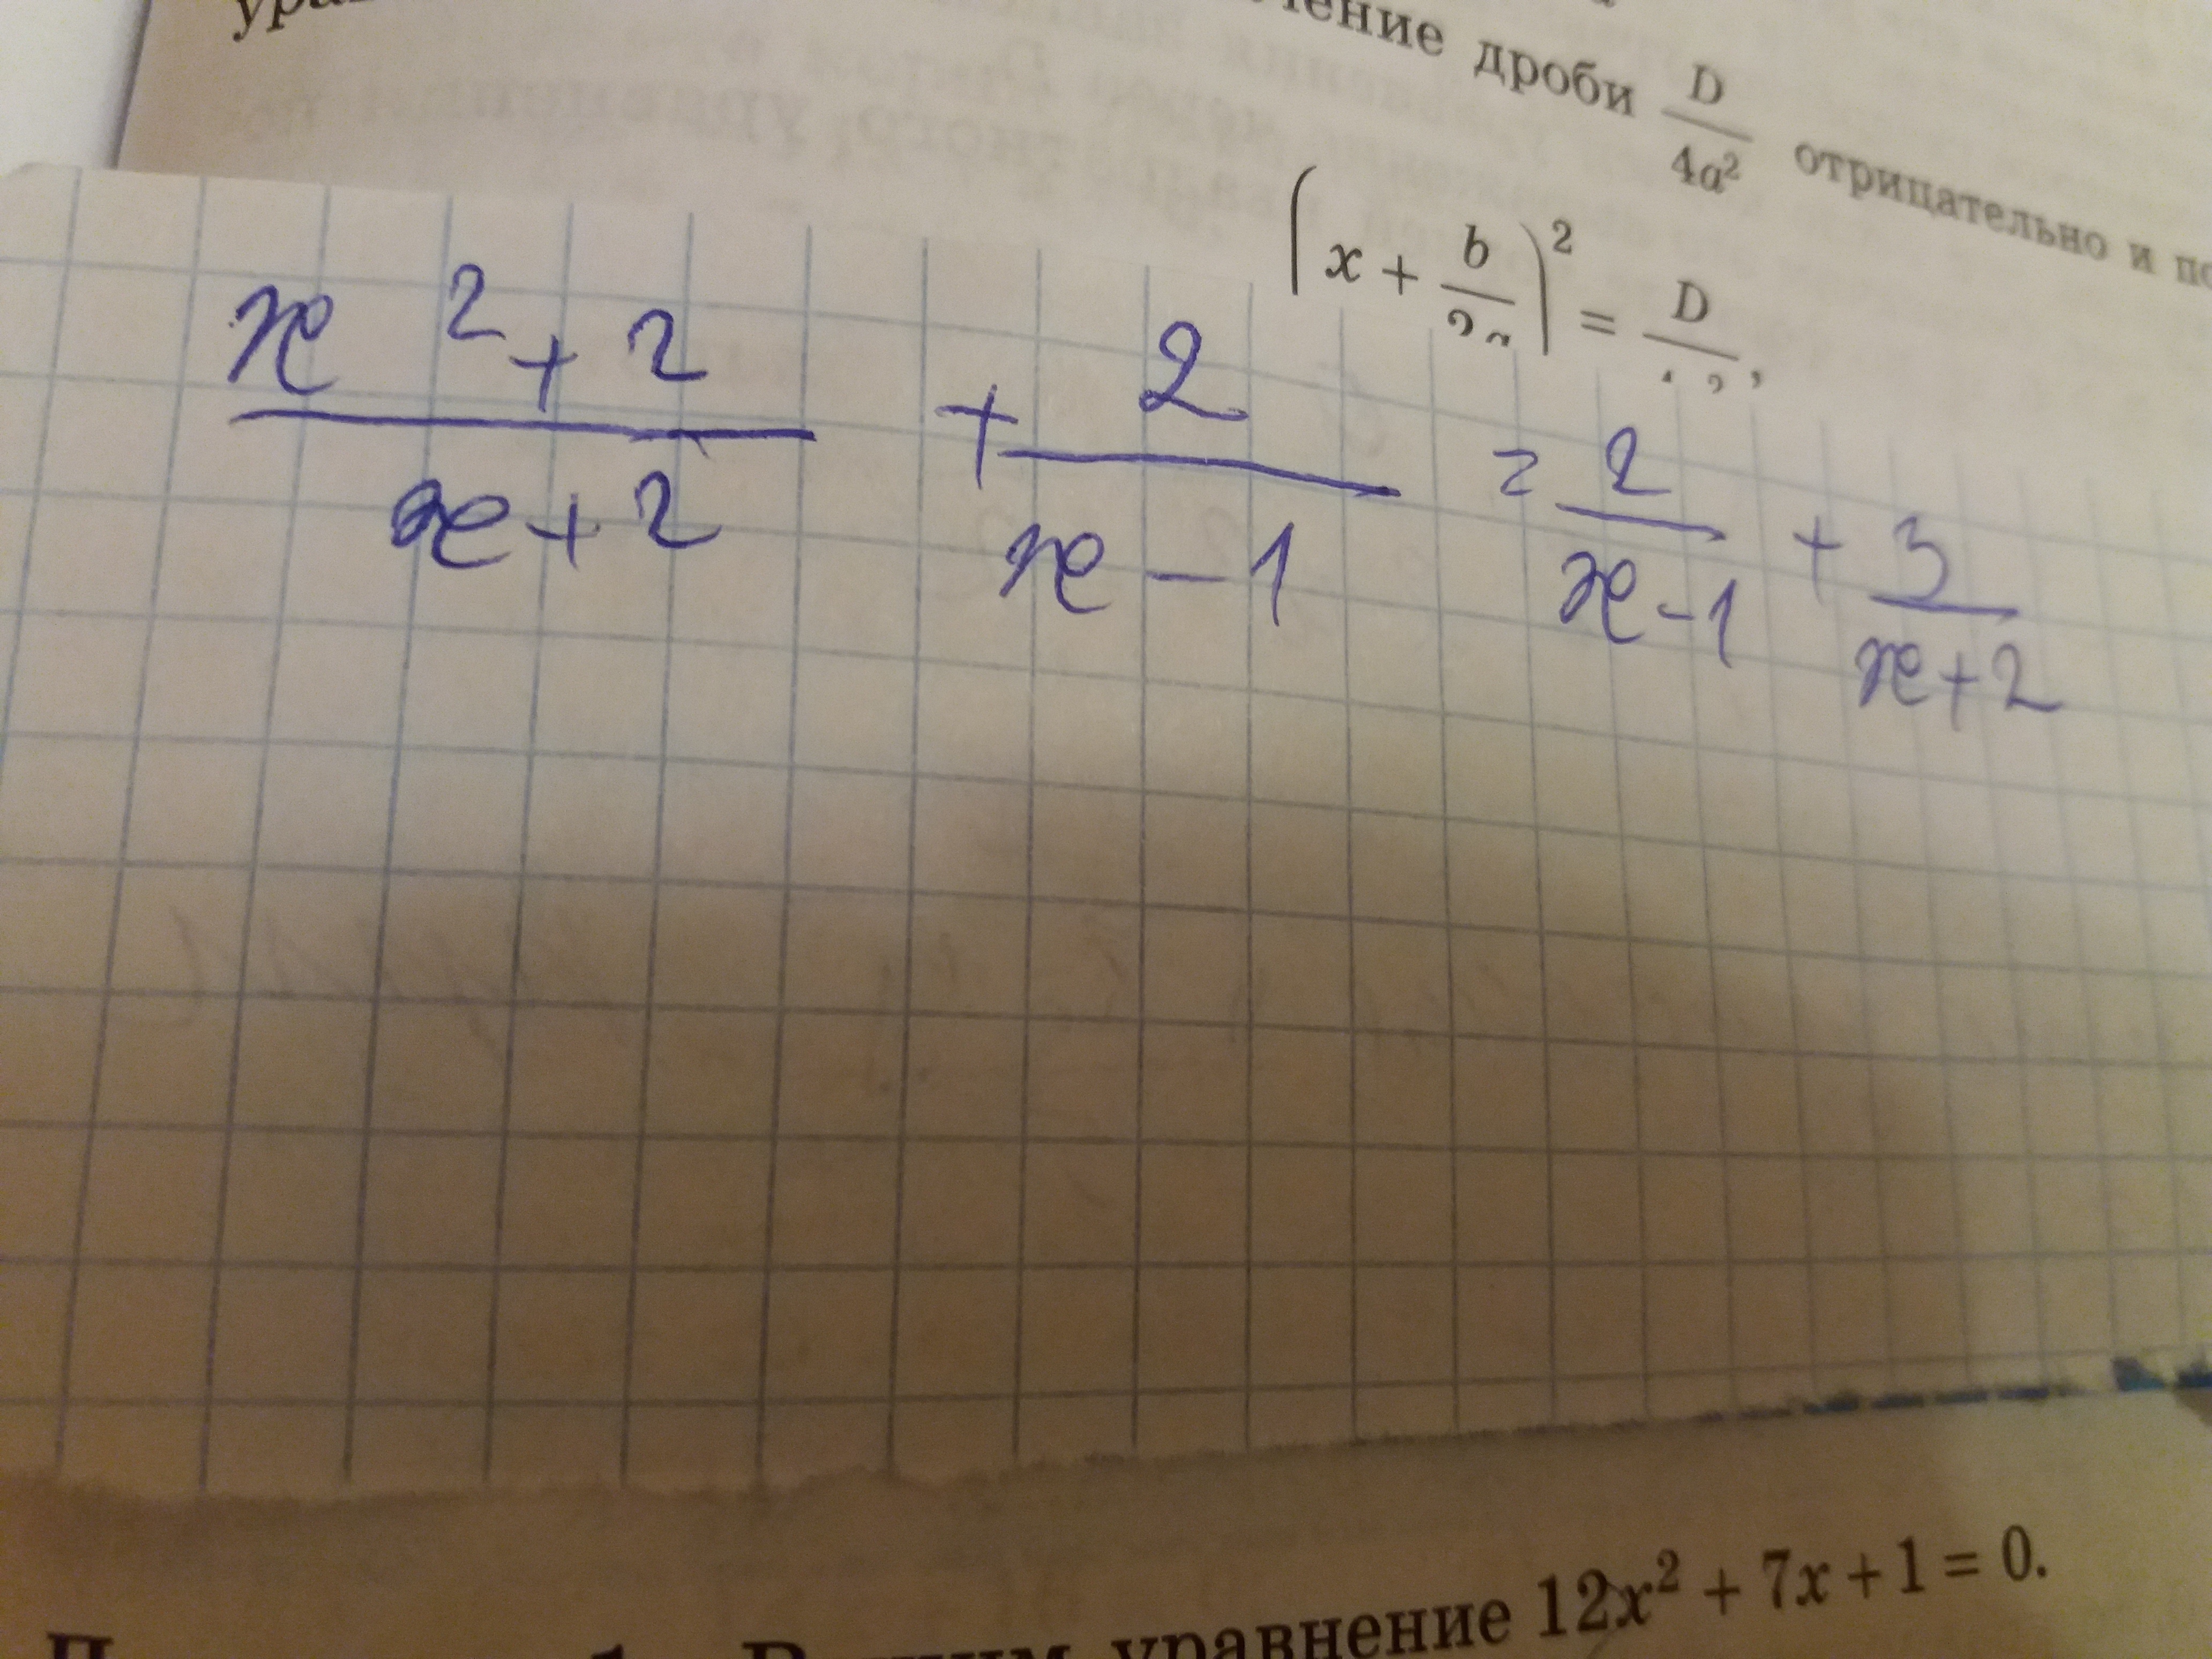 дроби D/4a² отрицательно и
(x + b/2a)² = D/
(x² + 2)/(x + 2) + 2/(x - 1) = 2/(x - 1) + 3/(x + 2)
уравнение 12x² + 7x + 1 = 0.